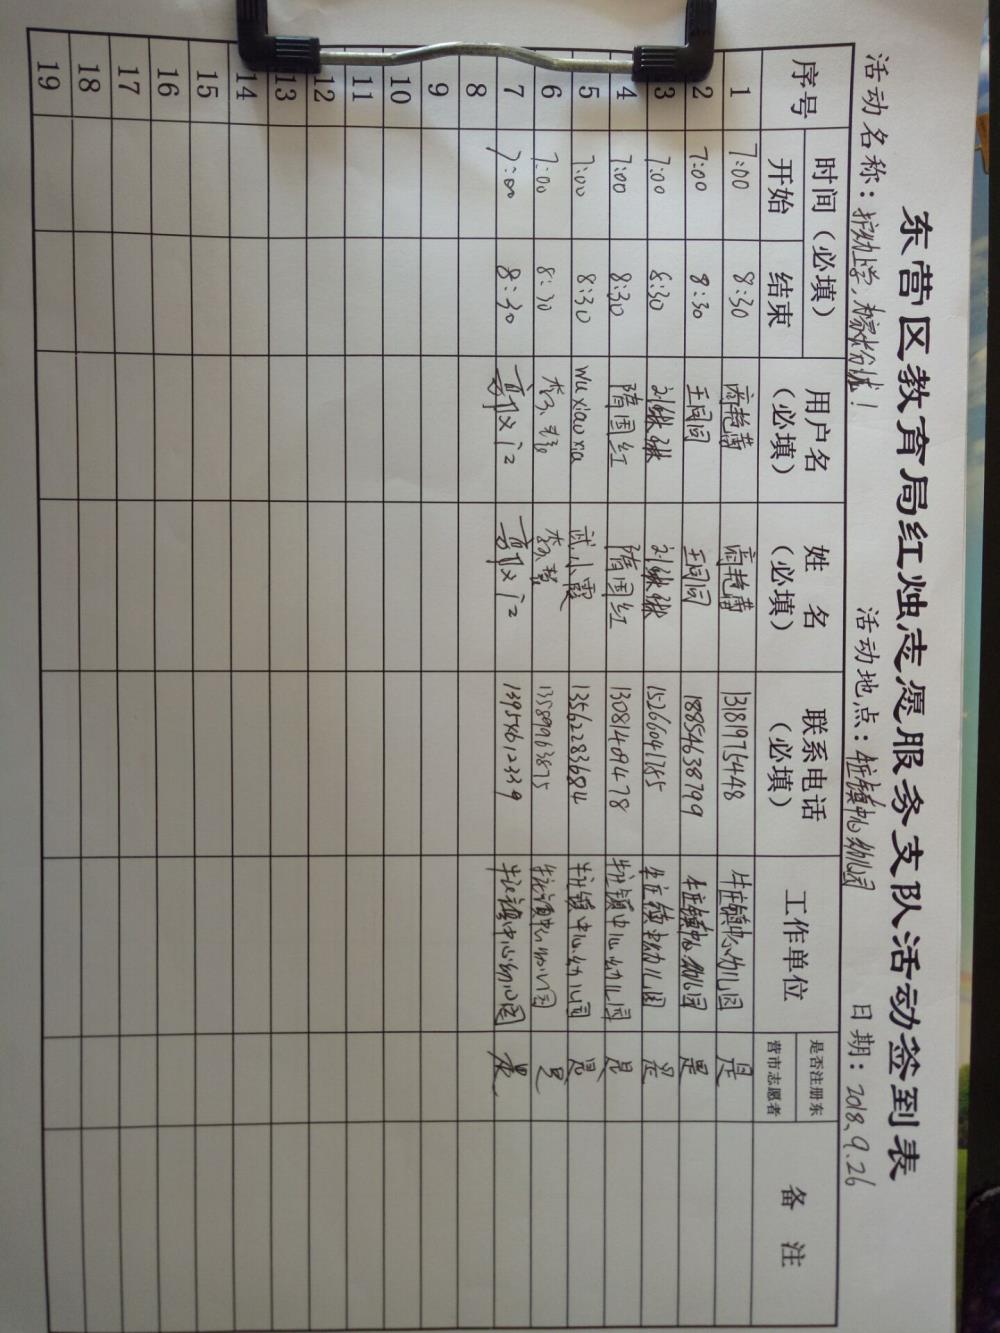 东营区教育局红烛志愿服务支队活动签到表
活动名称：护幼上学， 活动地点：牛庄镇中心幼儿园 日期：2018.9.26
序号 时间（必填） 用户名（必填） 姓名（必填） 联系电话（必填） 工作单位 是否注册东营市志愿者 备注
开始 结束
1 7:00 8:30 高艳茜 高艳茜 13181975448 牛庄镇中心幼儿园 是
2 7:00 8:30 王同同 王同同 18854638799 牛庄镇中心幼儿园 是
3 7:00 8:30 刘琳琳 刘琳琳 15266041785 牛庄镇中心幼儿园 是
4 7:00 8:30 隋国红 隋国红 13081409478 牛庄镇中心幼儿园 是
5 7:00 8:30 Wu xiao xia 武小霞 13562283684 牛庄镇中心幼儿园 是
6 7:00 8:30 13589963875 牛庄镇中心幼儿园 是
7 7:00 8:30 13954612339 牛庄镇中心幼儿园 是
8
9
10
11
12
13
14
15
16
17
18
19